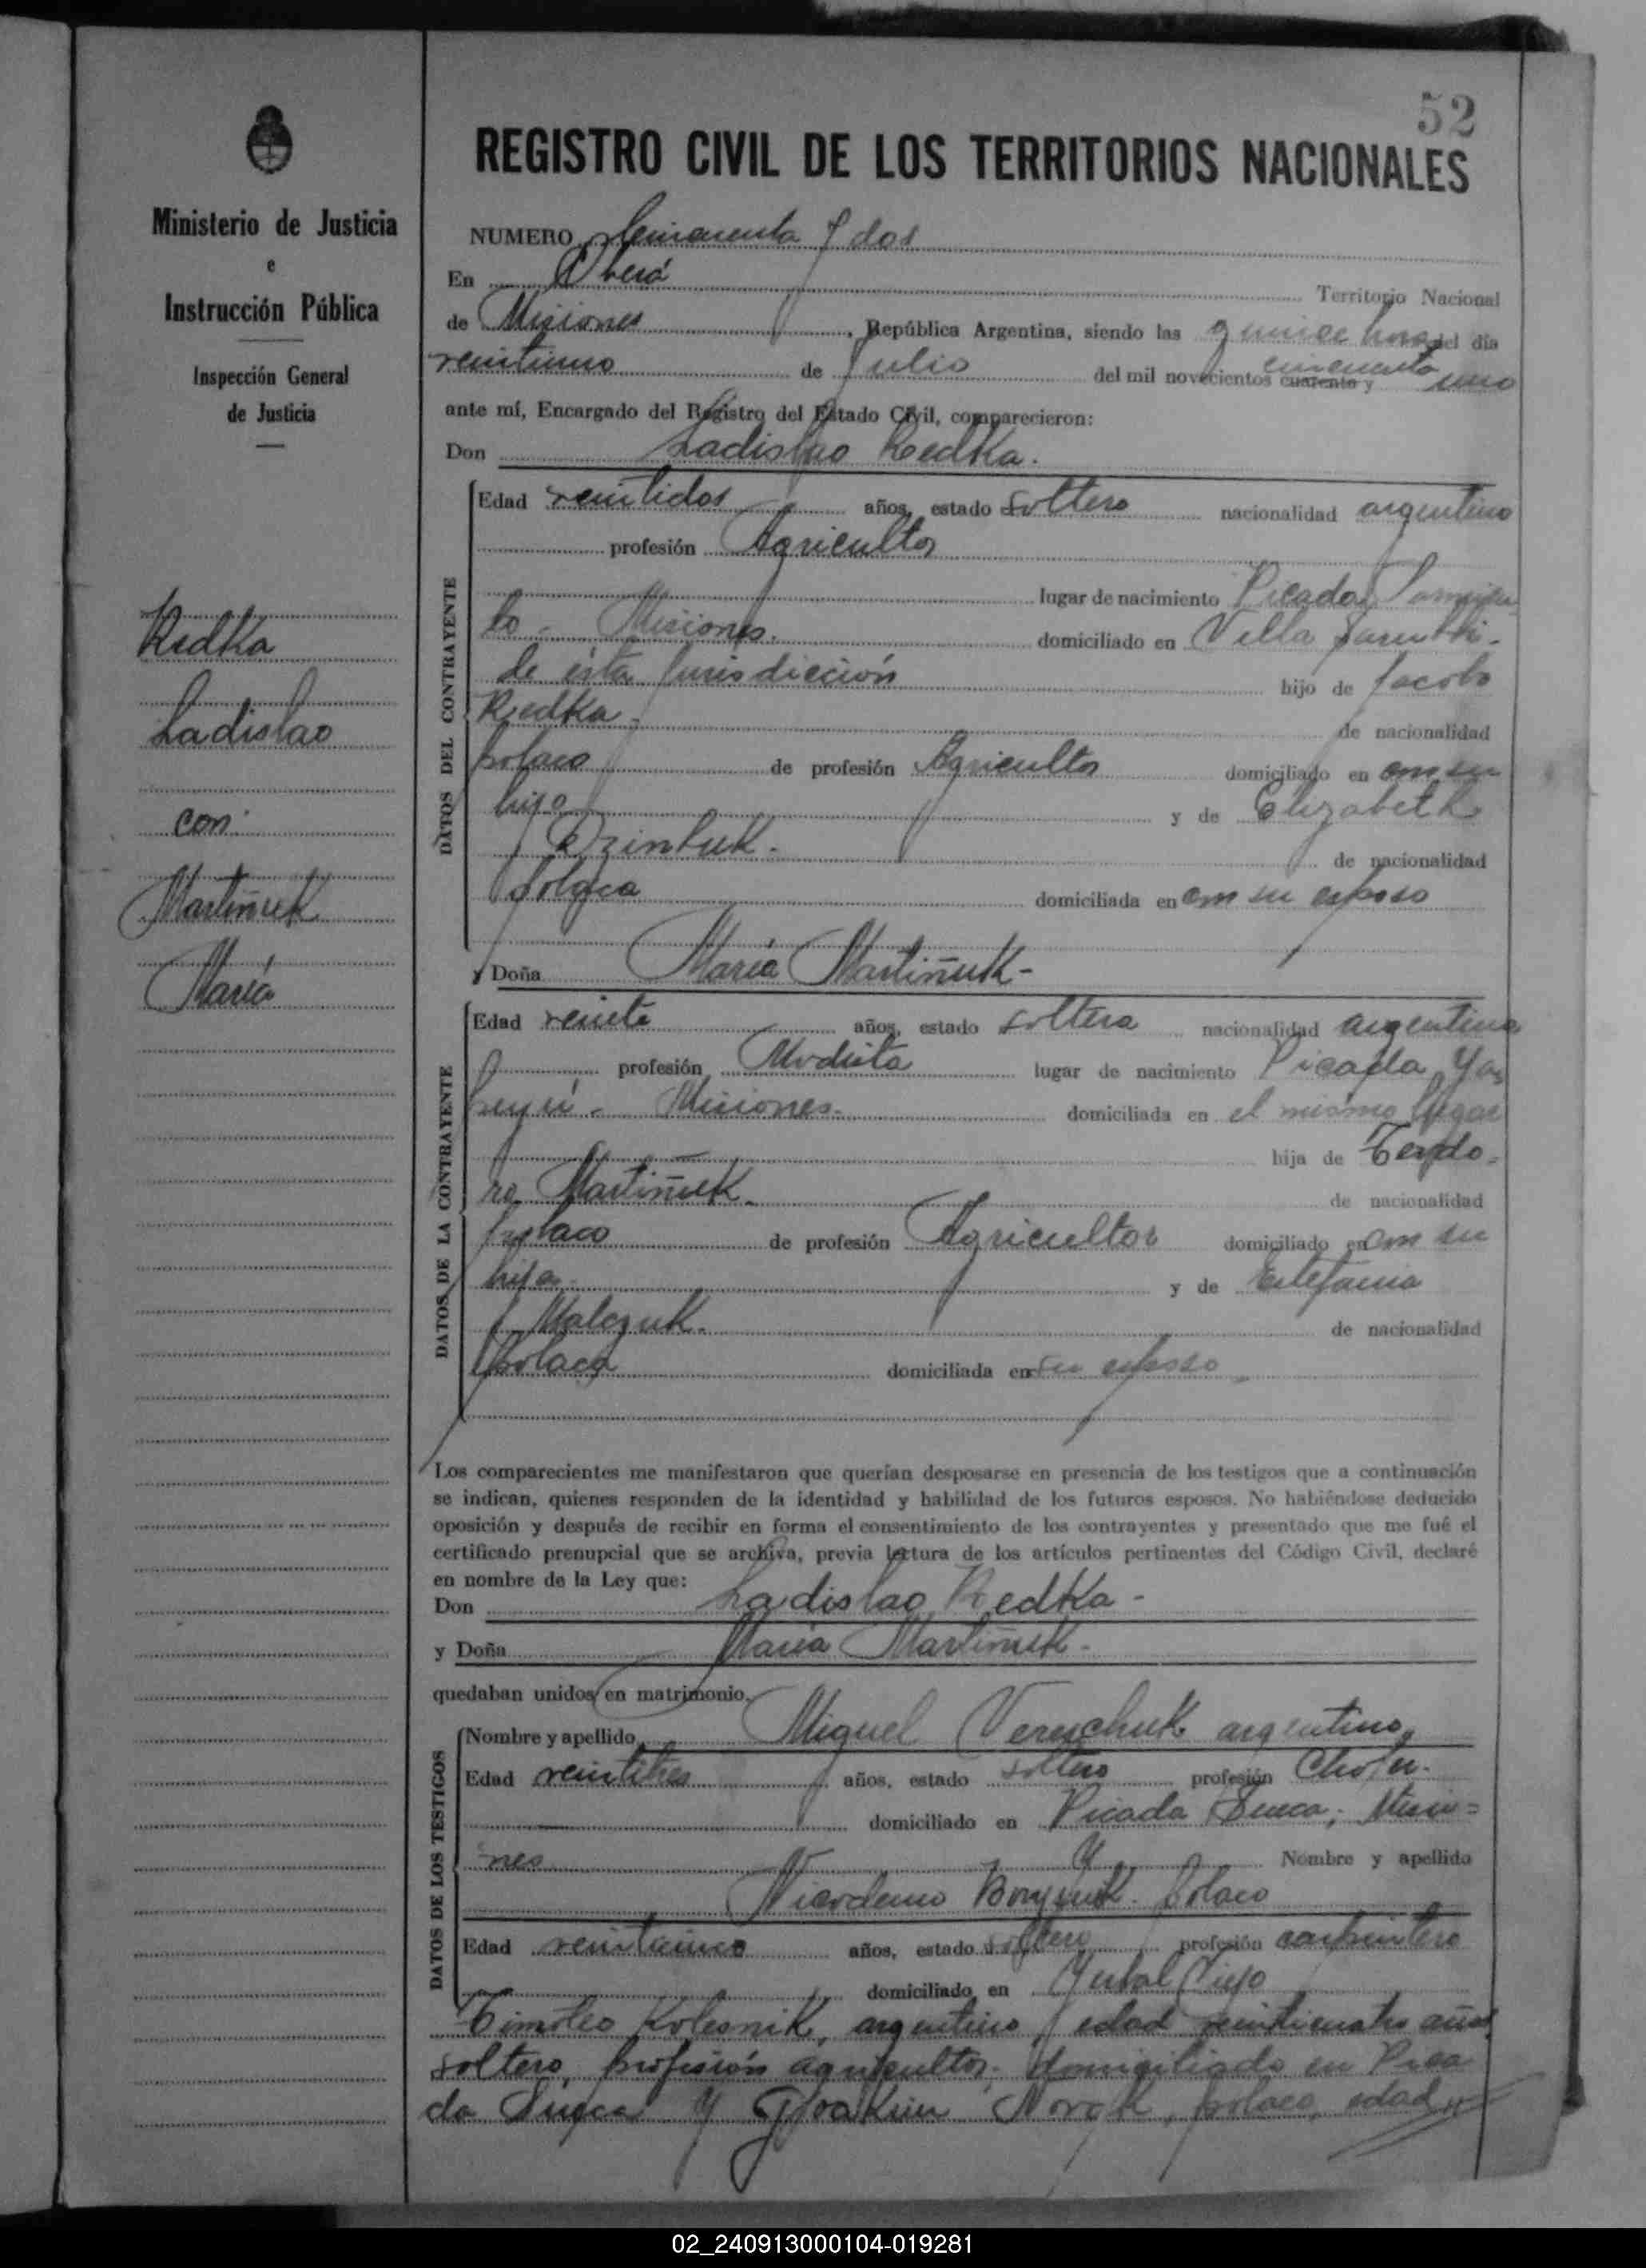 52
REGISTRO CIVIL DE LOS TERRITORIOS NACIONALES
Ministerio de Justicia
e
Instrucción Pública
Inspección General
de Justicia
Redka
Ladislao
con
Martiñuk
María
NUMERO Cincuenta y dos
En Oberá Territorio Nacional
de Misiones, República Argentina, siendo las quince horas del día
veintiuno de Julio del mil novecientos cuarenta y cincuenta uno
ante mí, Encargado del Registro del Estado Civil, comparecieron:
Don Ladislao Redka.
DATOS DEL CONTRAYENTE
Edad veintidos años, estado soltero nacionalidad argentino
profesión Agricultor
lugar de nacimiento Picada
Misiones. domiciliado en Villa
de ésta Jurisdicción hijo de Jacobo
Redka. de nacionalidad
polaco de profesión Agricultor domiciliado en con su
hijo y de Elizabeth
de nacionalidad
polaca domiciliada en con su esposo
y Doña María Martiñuk-
DATOS DE LA CONTRAYENTE
Edad veinte años, estado soltera nacionalidad argentina
profesión Modista lugar de nacimiento Picada Ya
beyú - Misiones. domiciliada en el mismo lugar
hija de Teodo-
ro Martiñuk. de nacionalidad
polaco de profesión Agricultor domiciliado en con su
hija y de Estefania
Malczuk. de nacionalidad
polaca domiciliada en su esposo
Los comparecientes me manifestaron que querían desposarse en presencia de los testigos que a continuación
se indican, quienes responden de la identidad y habilidad de los futuros esposos. No habiéndose deducido
oposición y después de recibir en forma el consentimiento de los contrayentes y presentado que me fué el
certificado prenupcial que se archiva, previa lectura de los artículos pertinentes del Código Civil, declaré
en nombre de la Ley que:
Don Ladislao Redka-
y Doña María Martiñuk-
quedaban unidos en matrimonio.
DATOS DE LOS TESTIGOS
Nombre y apellido Miguel Vereschuk argentino,
Edad veintitres años, estado soltero profesión Chofer.
domiciliado en Picada Sueca, Misio=
nes Y Nombre y apellido
Nicodemo polaco
Edad veinticinco años, estado soltero profesión carpintero
domiciliado en Yerbal Viejo
Timoteo Kolesnik, argentino, edad veinticuatro años
soltero, profesión agricultor, domiciliado en Pica
da Sueca Y polaco, edad
02_240913000104-019281